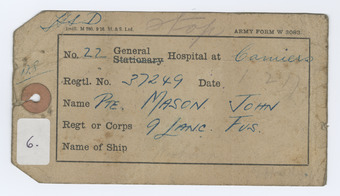 H.S.D.
ARMY FORM W 3083
No. 22 General Stationary Hospital at Camiers
Regtl. No. 37249 Date
Name Pte. MASON. JOHN
Regt or Corps 9 LANC. FUS.
Name of Ship
6.